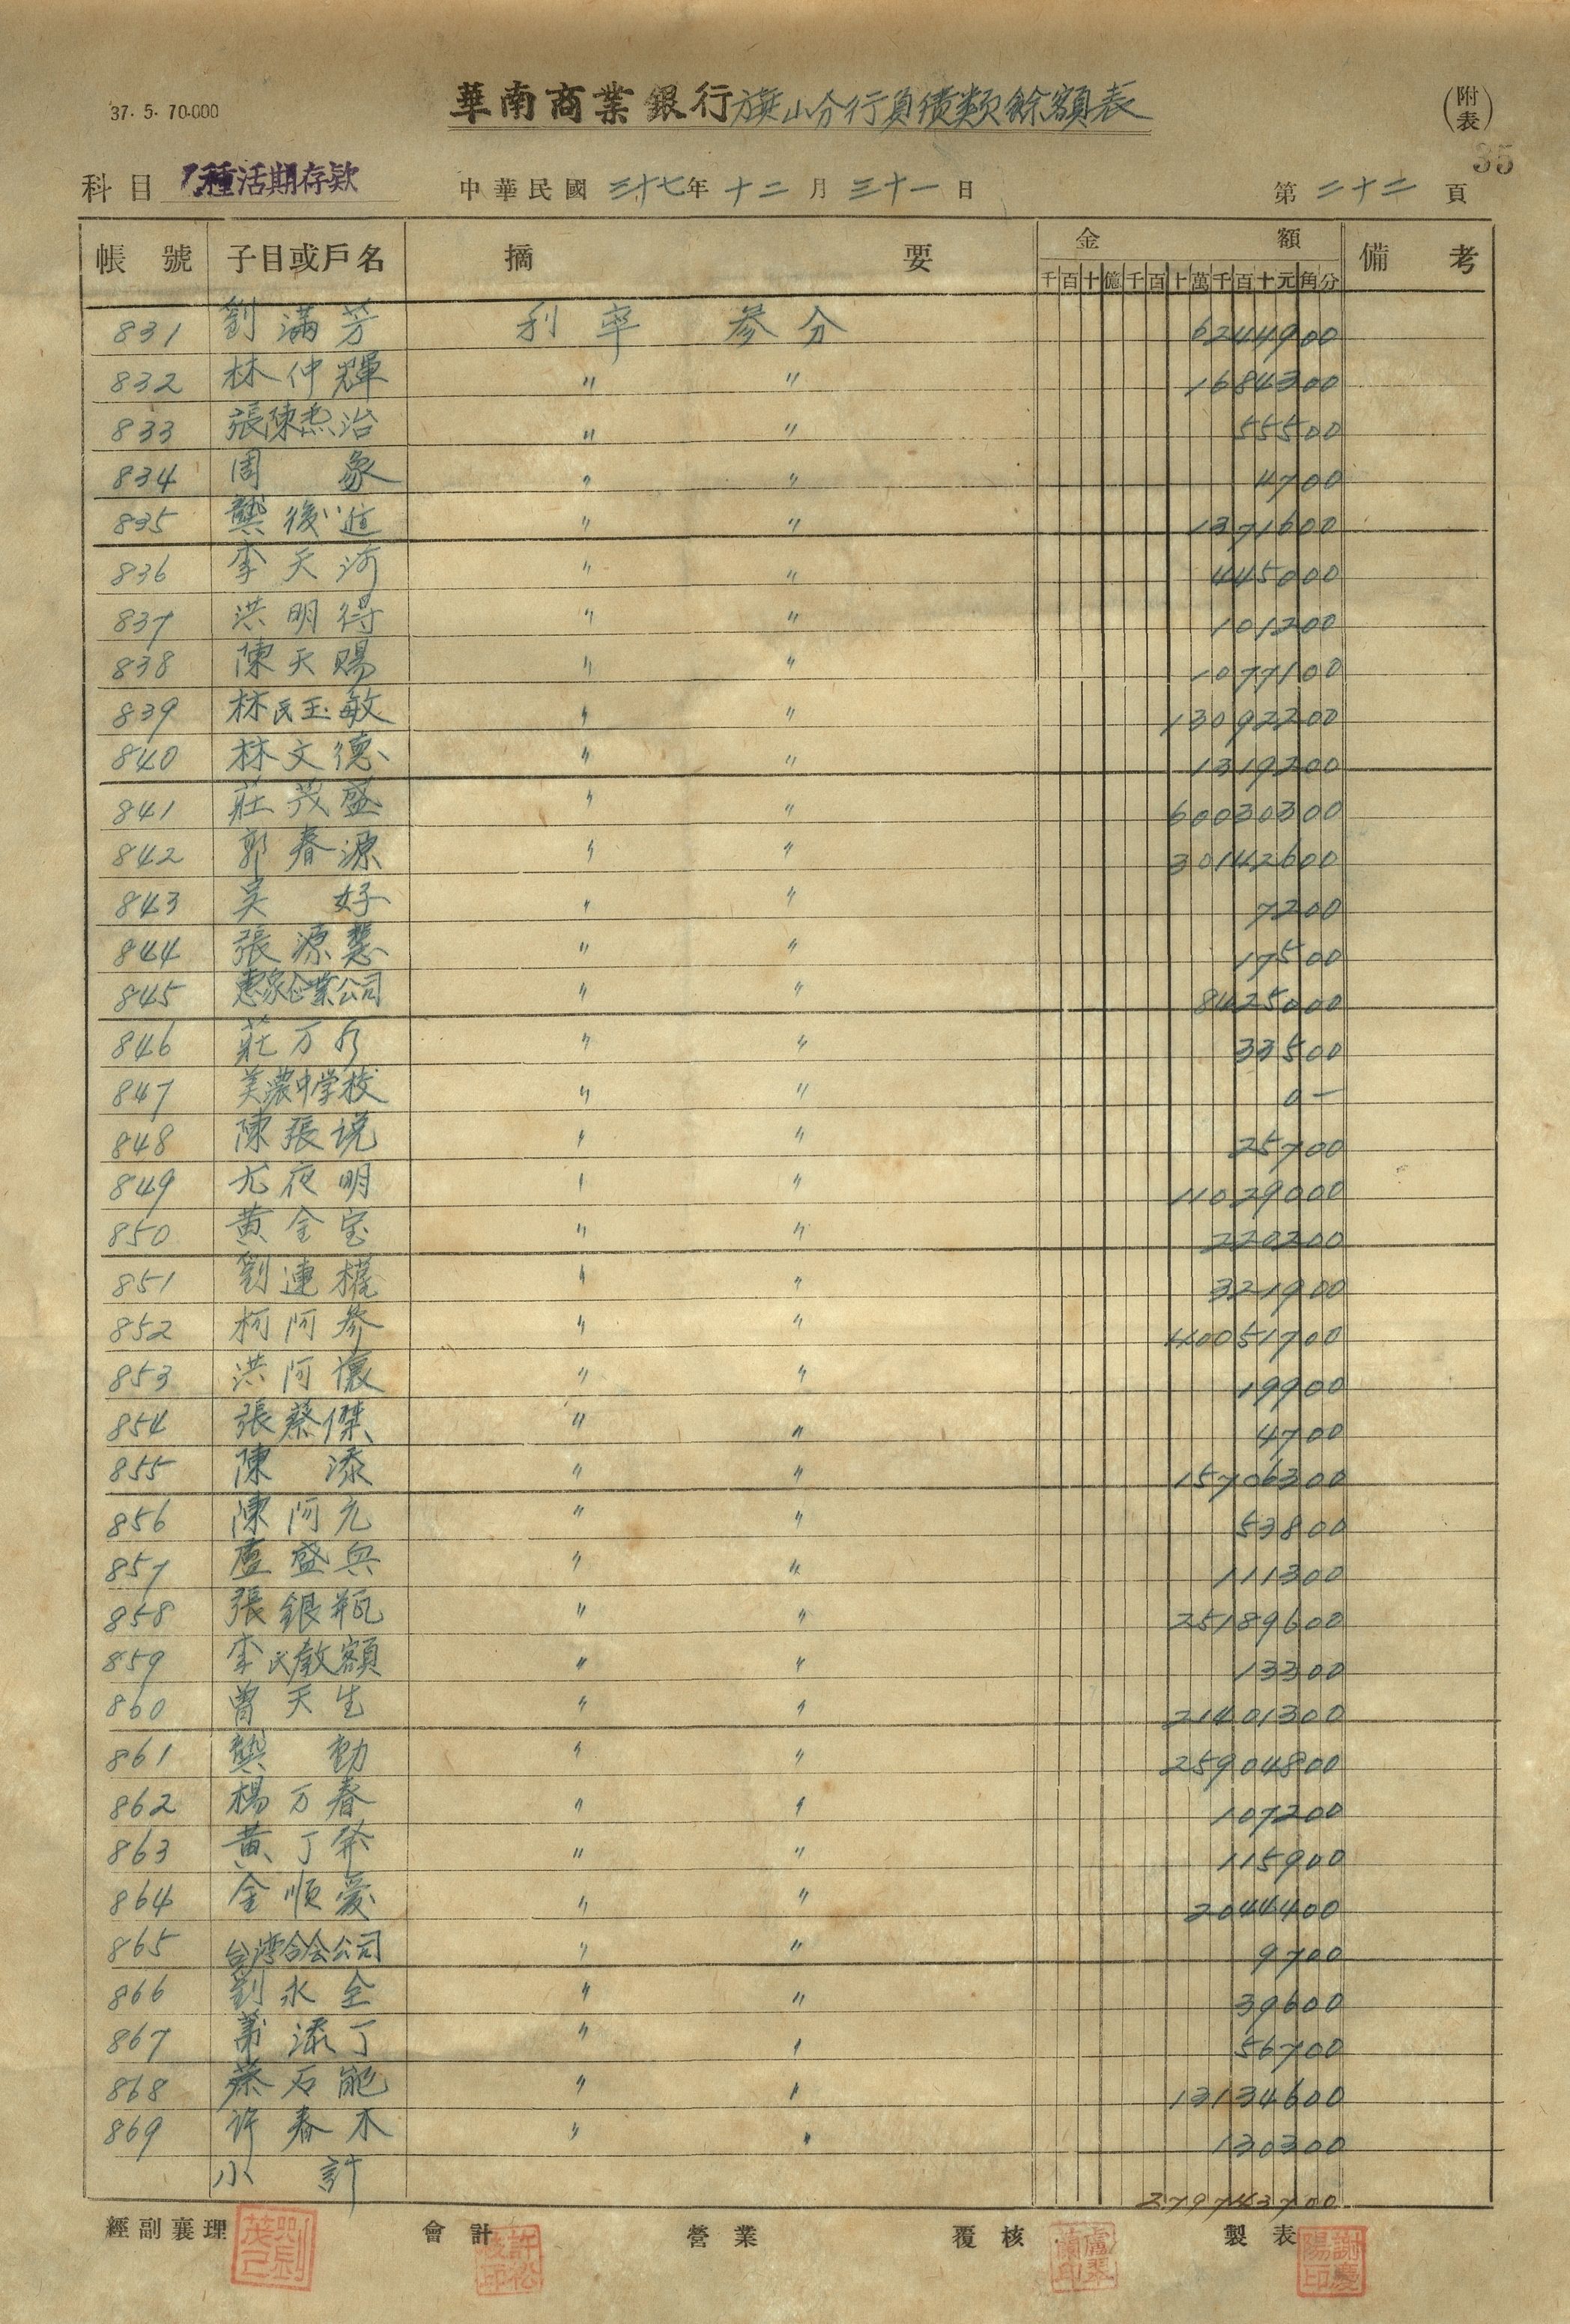 37. 5. 70.000
華南商業銀行旗山分行負債類餘額表
(附表)
35
科目 乙種活期存款 中華民國 三十七年 十二月 三十一日 第 二十二 頁
帳號 子目或戶名 摘要 金額 備考
千百十億千百十萬千百十元角分
831 劉滿芳 利率 參分 6244900
832 林仲輝 〃 〃 1684300
833 張陳焄治 〃 〃 55500
834 周象 〃 〃 4700
835 龔後道 〃 〃 1371600
836 李天河 〃 〃 445000
837 洪明得 〃 〃 101200
838 陳天賜 〃 〃 1077100
839 林氏玉敏 〃 〃 13092200
840 林文德 〃 〃 1319200
841 莊茂盛 〃 〃 60030300
842 郭春源 〃 〃 30142600
843 吳好 〃 〃 7200
844 張源慧 〃 〃 17500
845 惠象企業公司 〃 〃 8425000
846 莊万 〃 〃 33500
847 美濃中学校 〃 〃 0—
848 陳張说 〃 〃 25700
849 尤夜明 〃 〃 11029000
850 黃金宝 〃 〃 220200
851 劉連權 〃 〃 321900
852 柯阿參 〃 〃 40051700
853 洪阿懷 〃 〃 19900
854 張蔡傑 〃 〃 4700
855 陳添 〃 〃 15706300
856 陳阿允 〃 〃 53800
857 盧盛兴 〃 〃 111300
858 張銀瓶 〃 〃 25189600
859 李氏教額 〃 〃 13300
860 曾天生 〃 〃 21401300
861 龔動 〃 〃 25904800
862 楊万春 〃 〃 107200
863 黃丁 〃 〃 115900
864 金順愛 〃 〃 2044400
865 台湾合会公司 〃 〃 9700
866 劉永全 〃 〃 39600
867 添丁 〃 〃 56700
868 蔡石能 〃 〃 13134600
869 许春木 〃 〃 130300
小計 279743700
經副襄理 會計 營業 覆核 製表
許松 印
盧翠蘭印
謝慶陽印